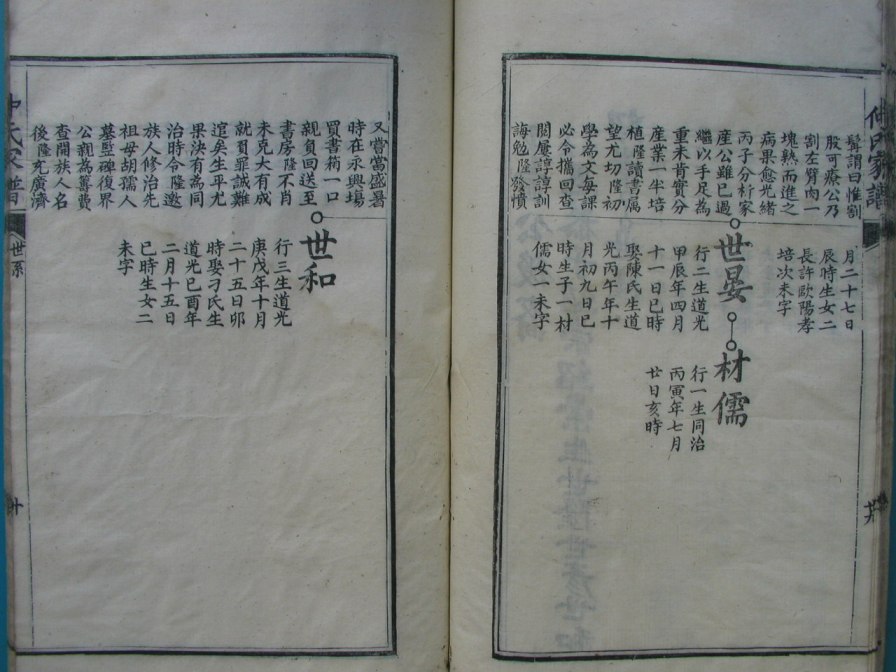 謂曰惟割
股可療公乃
割左臂肉一
塊熟而進之
病果愈光緒
丙子分析家
產公雖已過
繼以手足為
重未肯實分
產業一半培
植隆讀書厲
望尤切隆初
學為文每課
必令攜回查
閱屢諄諄訓
誨勉隆發憤
月二十七日
辰時生女二
長許歐陽孝
培次未字
世晏
行二生道光
甲辰年四月
十一日巳時
娶陳氏生道
光丙午年十
月初九日巳
時生子一材
儒女一未字
材儒
行一生同治
丙寅年七月
廿日亥時
又嘗當盛暑
時在永興場
買書箱一口
親負回送至
書房隆不肖
未克大有成
就負罪誠難
逭矣生平尤
果決有為同
治時令隆邀
族人修治先
祖母胡孺人
墓監碑復界
公親為籌費
查開族人名
後隆充廣濟
世和
行三生道光
庚戌年十月
二十五日卯
時娶刁氏生
道光己酉年
二月十五日
巳時生女二
未字
世系